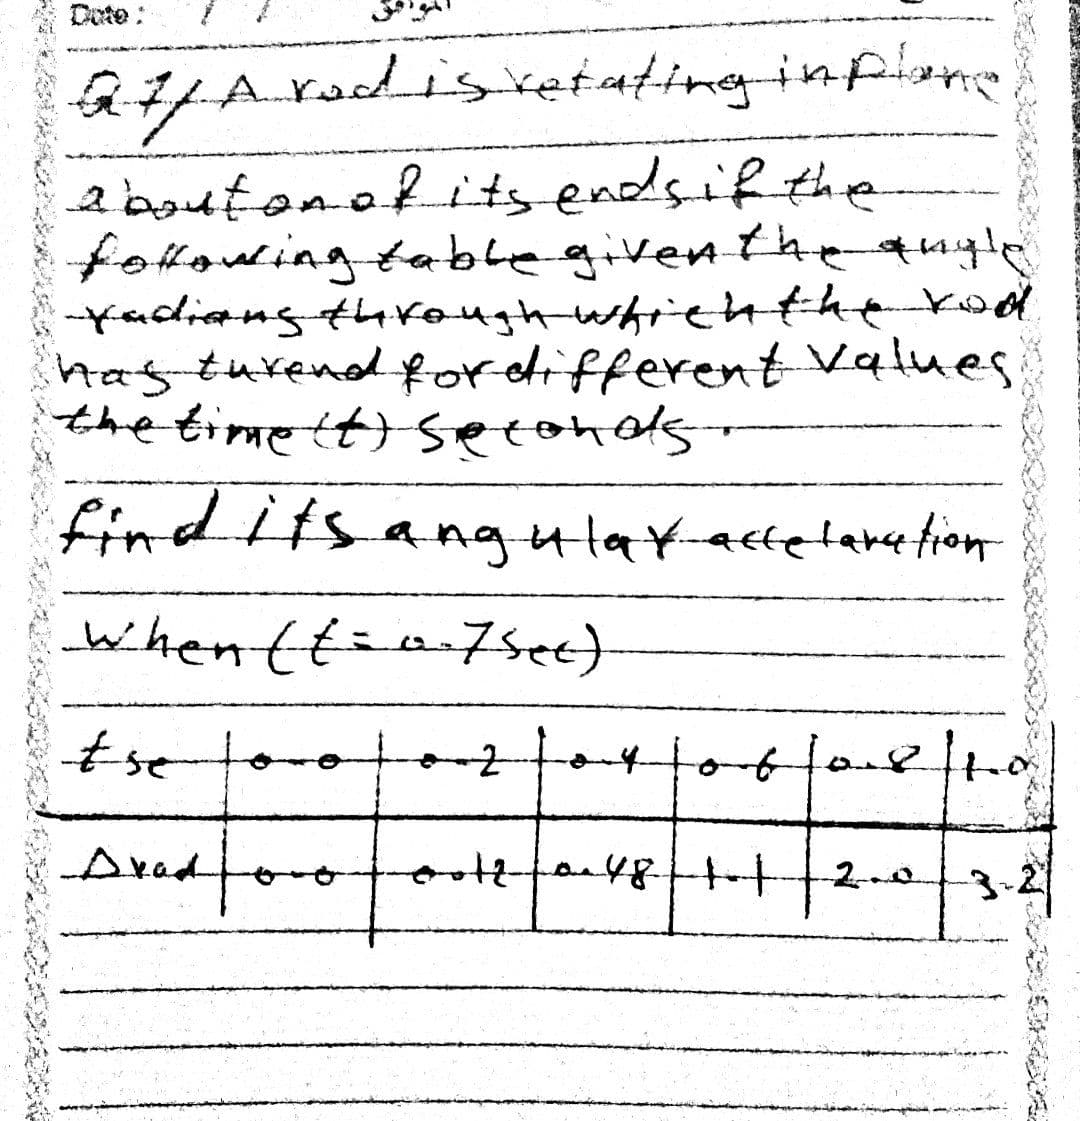 Date : / /
الموافق
Q7/ A rod is retating in plane
about on of its ends if the
following table given the angle
radians through which the rod
has turend for different values
the time (t) seconds.
find its angular accelaration
When (t=0.7sec)
t se | 0.0 | 0.2 | 0.4 | 0.6 | 0.8 | 1.0
Δ rad | 0.0 | 0.12 | 0.48 | 1.1 | 2.0 | 3.2